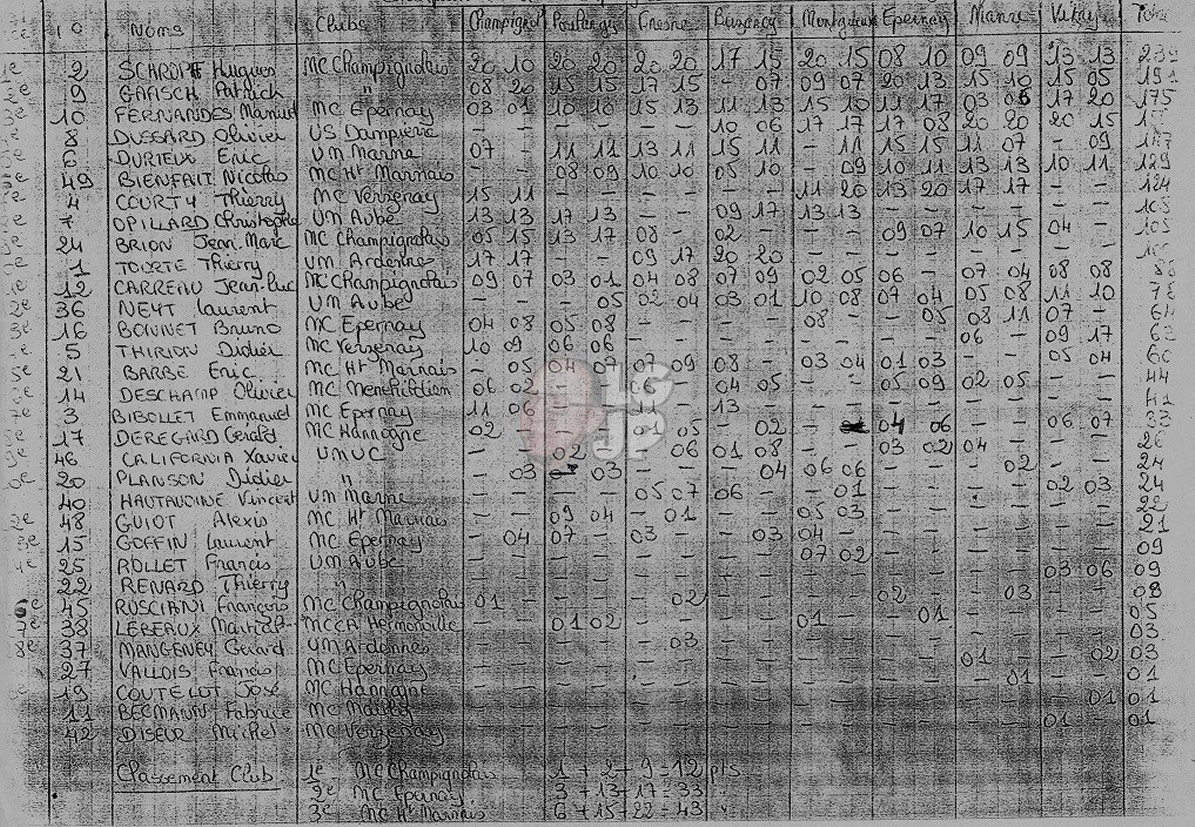 N° Noms Clubs Champignol Possesse Fresne Buzancy Montgueux Epernay Nianne Vitay Total
1e 2 SCHROPF Hugues MC Champignolais 20 10 20 20 20 20 17 15 20 15 08 10 09 09 13 13 239
2e 9 GAASCH Patrick " 08 20 15 15 17 15 - 07 09 07 20 13 15 10 15 05 191
3e 10 FERNANDES Manuel MC Epernay 03 01 10 10 15 13 11 13 15 10 11 17 03 06 17 20 175
8 DUSSARD Olivier US Dampierre - - - - - - 10 06 17 17 17 08 20 20 20 15
6 DURIEUX Eric UM Marne 07 - 11 11 13 11 15 11 - 11 15 15 11 07 - 09 147
49 BIENFAIT Nicolas MC Ht Marnais - - 08 09 10 10 05 10 - 09 10 11 13 13 10 11 129
4 COURTY Thierry MC Verzenay 15 11 - - - - - - 11 20 13 20 17 17 - - 124
7 OPILLARD Christophe UM Aube 13 13 17 13 - - 09 17 13 13 - - - - - - 108
24 BRION Jean.Marc MC Champignolais 05 15 13 17 08 - 02 - - - 09 07 10 15 04 - 105
1 TOURTE Thierry UM Ardenne 17 17 - - 09 17 20 20 - - - - - - - - 100
12 CARREAU Jean-Luc MC Champignolais 09 07 03 01 04 08 07 09 02 05 06 - 07 04 08 08
2e 36 NEYT Laurent UM Aube - - - 05 02 04 03 01 10 08 07 04 05 08 11 10 78
3e 16 BONNET Bruno MC Epernay 04 08 05 08 - - - - 08 - - 05 08 11 07 - 64
5 THIRION Didier MC Verzenay 10 09 06 06 - - - - - - - - 06 - 09 17 63
5e 21 BARBE Eric MC Ht Marnais - 05 04 07 07 09 08 - 03 04 01 03 - - 05 04 60
14 DESCHAMP Olivier 06 02 - - - 04 05 - - 05 09 02 05 - - 44
7e 3 BIBOLLET Emmanuel MC Epernay 11 06 - - 11 - 13 - - - - - - - - - 41
17 DEREGARD Gérald MC Hannogne 02 - - - 01 05 - 02 - 04 06 - - 06 07 33
46 CALIFORNIA Xavier UMUC - - 02 - - 06 01 08 - - 03 02 04 - - - 26
20 PLANSON Didier " - 03 03 - - - 04 06 06 - - - 02 - - 24
40 HAUTAVOINE Vincent UM Marne - - - - 05 07 06 - - 01 - - - - 02 03 24
48 GUIOT Alexis MC Ht Marnais - - 09 04 - 01 - - 05 03 - - - - - - 22
15 GOFFIN Laurent MC Epernay - 04 07 - 03 - - 03 04 - - - - - - - 21
25 ROLLET Francis UM Aube - - - - - - - - 07 02 - - - - - - 09
22 RENARD Thierry " - - - - - - - - - - - - - - 03 06 09
45 RUSCIANI François MC Champignolais 01 - - - - 02 - - - - 02 - - 03 - - 08
7e 38 LEBEAUX Martial MCCA Hermonville - - 01 02 - - - - 01 - - 01 - - - - 05
8e 37 MANGENEY Gérard UM Ardennes - - - - - 03 - - - - - - - - - - 03
27 VALLOIS Francis MC Epernay - - - - - - - - - - - - 01 - - 02 03
19 COUTELOT José MC Hannogne - - - - - - - - - - - - - 01 - - 01
11 BECMANN Fabrice - - - - - - - - - - - - - - - 01 01
42 DISEUR Michel MC Verzenay - - - - - - - - - - - - - - 01 - 01
Classement Club 1e - MC Champignolais 1 + 2 + 9 = 12 pts
2e - MC Epernay 3 + 13 + 17 = 33 "
3e MC Ht Marnais 6 + 15 + 22 = 43 "
LG
JP